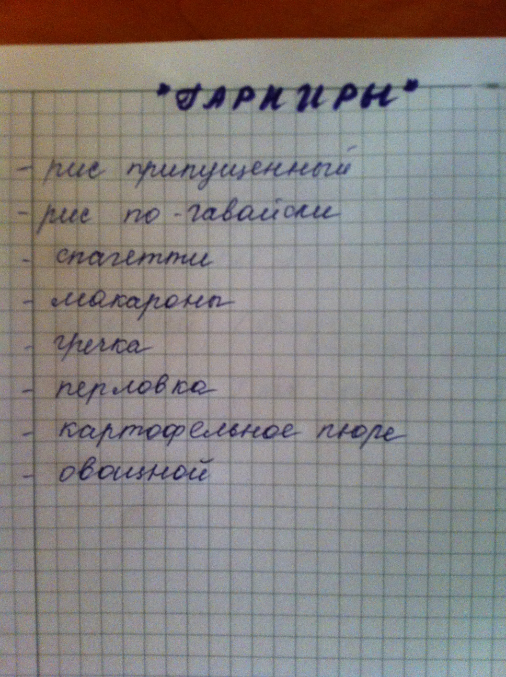 "ГАРНИРЫ"
- рис припущенный
- рис по-гавайски
- спагетти
- макароны
- гречка
- перловка
- картофельное пюре
- овощной